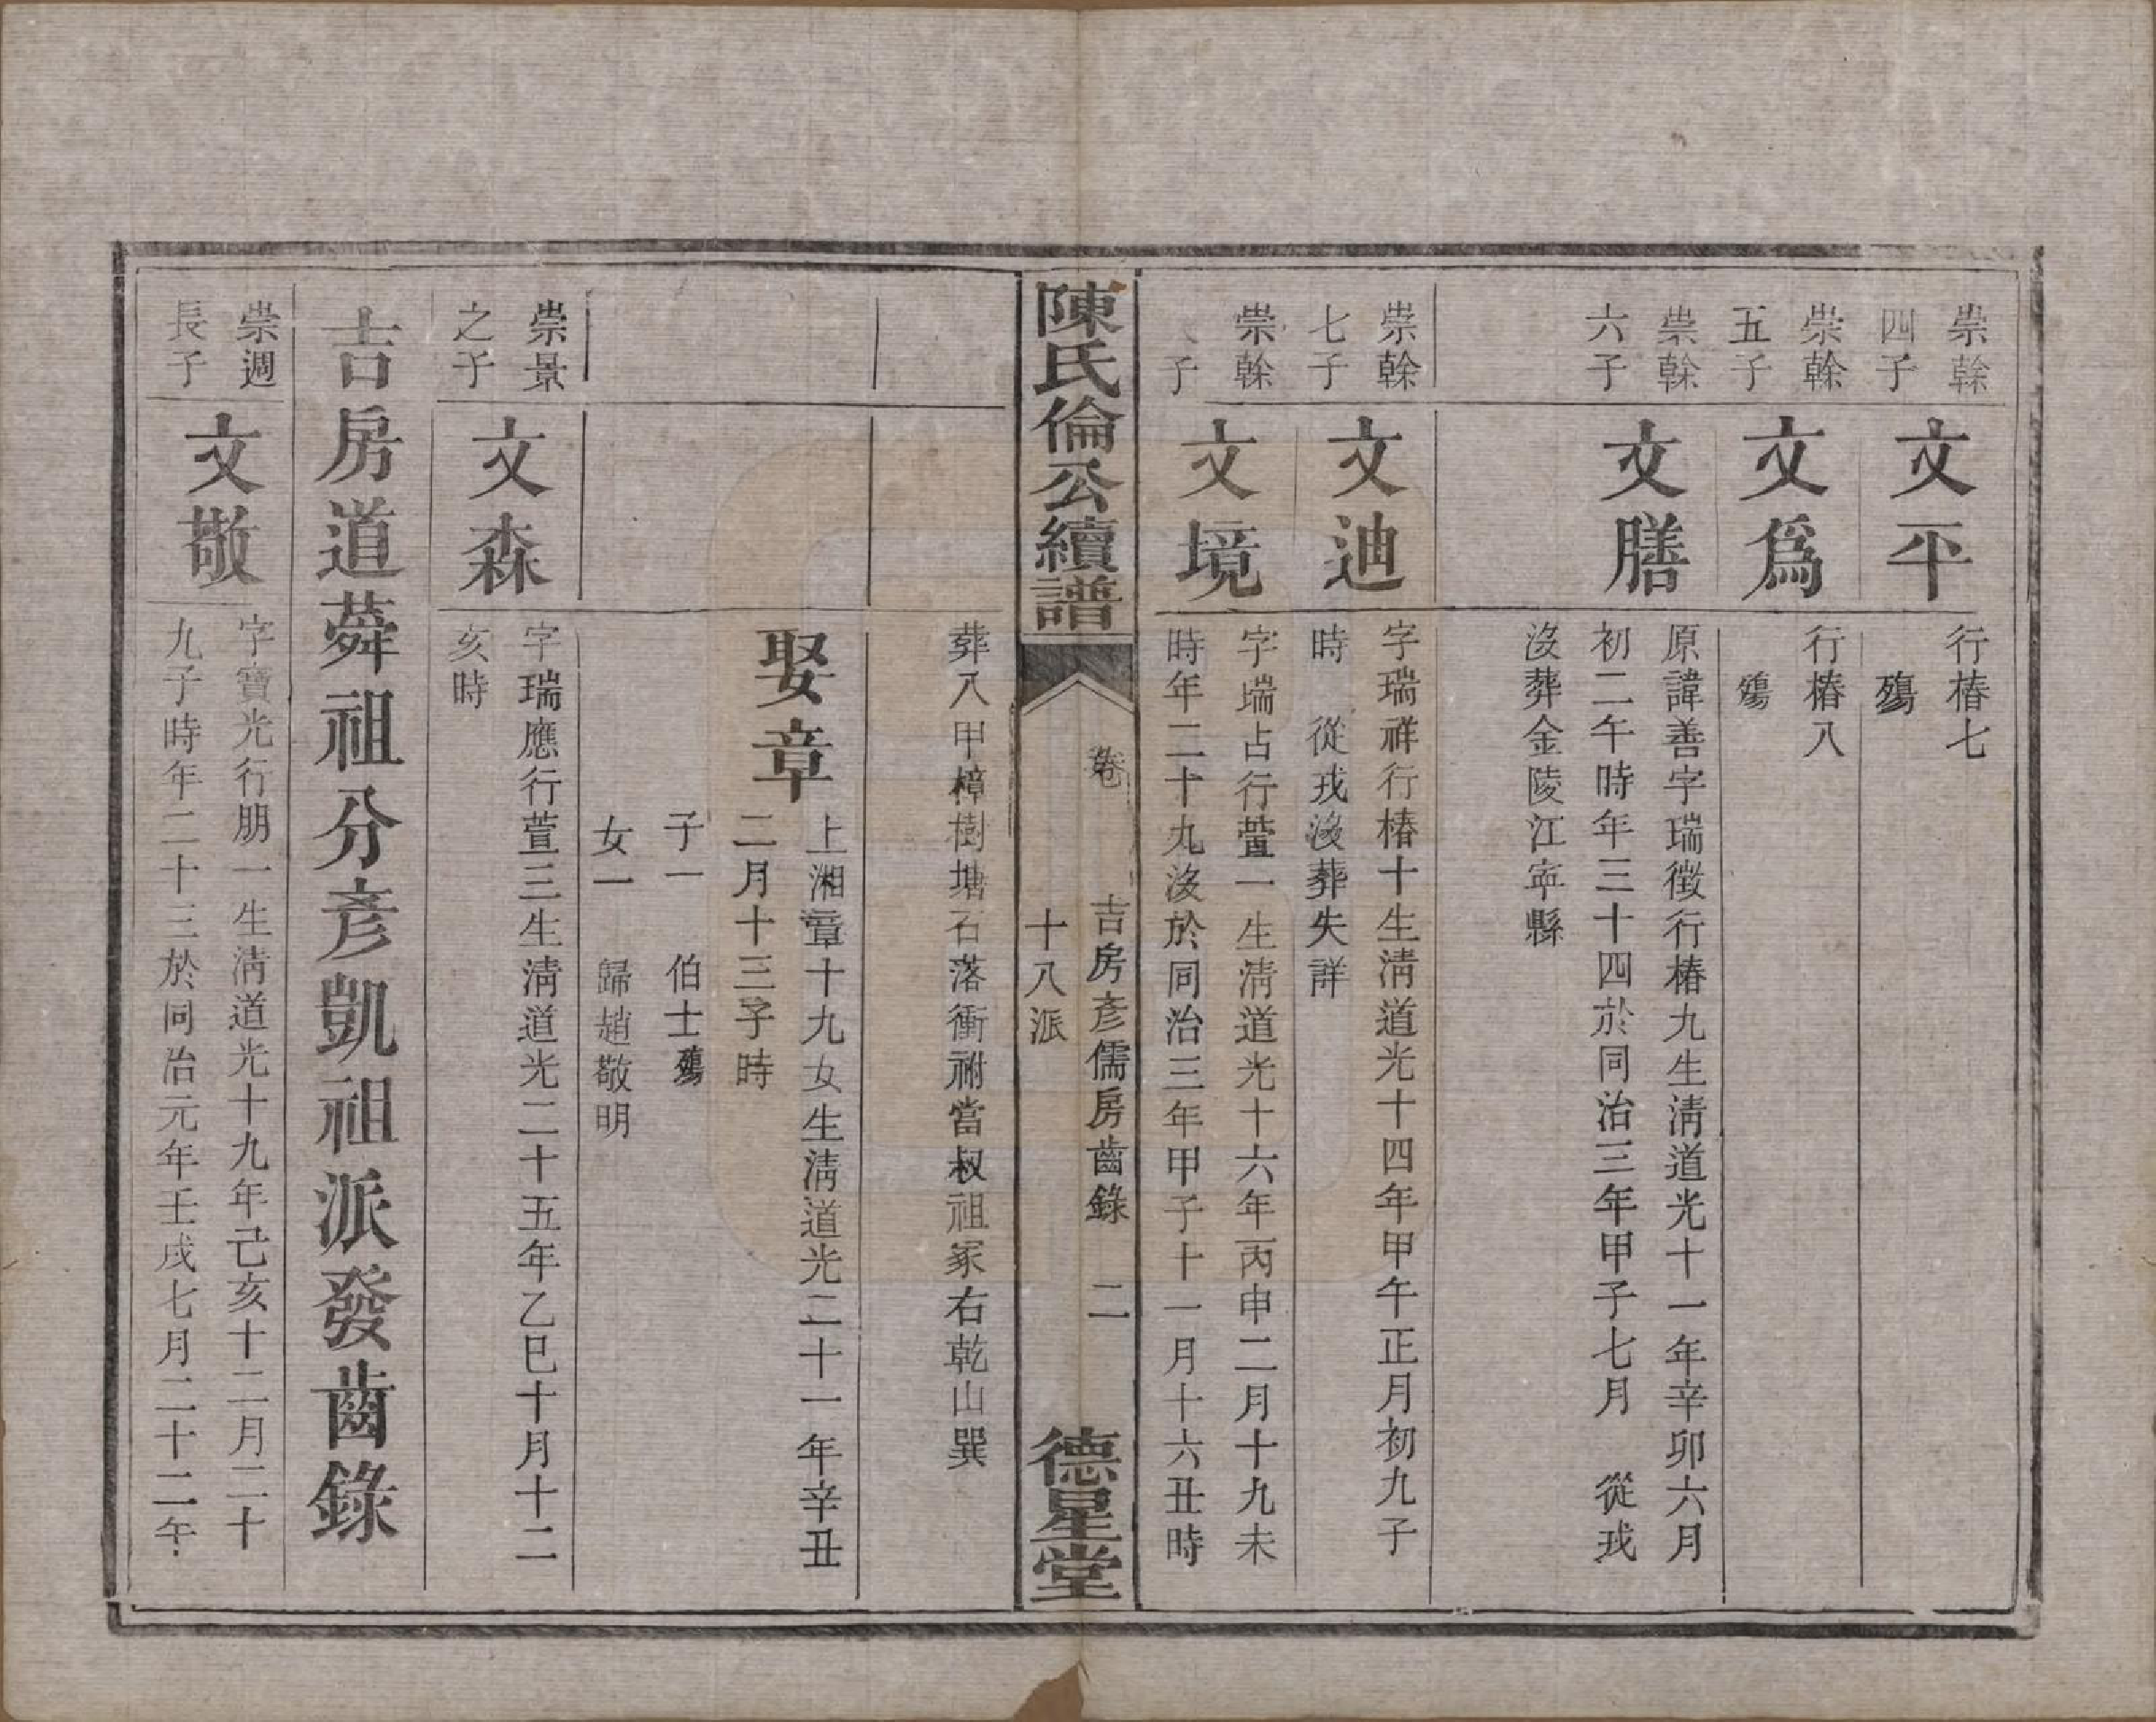 崇榦
四子
文平
行椿七
殤
崇榦
五子
文爲
行椿八
殤
崇榦
六子
文膳
原諱善字瑞徵行椿九生淸道光十一年辛卯六月
初二午時年三十四於同治三年甲子七月 從戎
沒葬金陵江寧縣
崇榦
七子
文迪
字瑞祥行椿十生淸道光十四年甲午正月初九子
時 從戎沒葬失詳
崇榦
子
文境
字瑞占行萱一生淸道光十六年丙申二月十九未
時年二十九沒於同治三年甲子十一月十六丑時
陳氏倫公續譜
卷 吉房彥儒房齒錄 二
十八派
德星堂
葬八甲樟樹塘石落衝祔當叔祖冢右乾山巽
娶章
上湘章十九女生淸道光二十一年辛丑
二月十三子時
子一 伯士殤
女一 歸趙敬明
崇景
之子
文森
字瑞應行萱三生淸道光二十五年乙巳十月十二
亥時
吉房道蕣祖分彥凱祖派發齒錄
崇週
長子
文敬
字寶光行朋一生淸道光十九年己亥十二月二十
九子時年二十三於同治元年壬戌七月二十二午